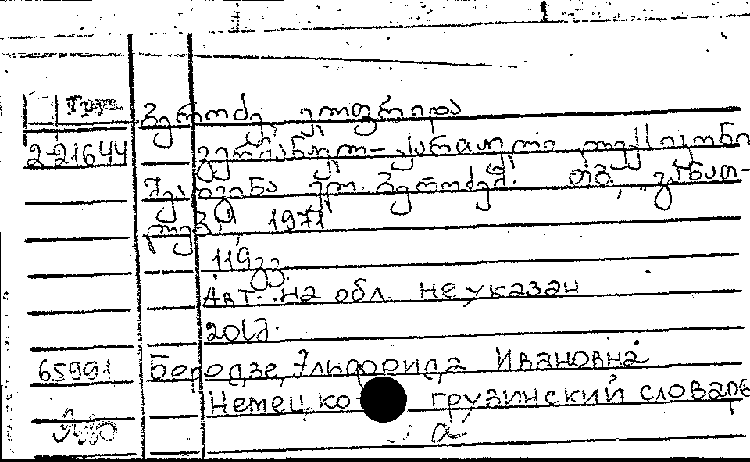 Груз. ბეროძე, ელფრიდა
2-21644 გერმანულ-ქართული ლექსიკონი
შეადგინა ელ. ბეროძემ. თბ., განათ-
ლება, 1971
119 გვ.
Авт. на обл. не указан
65991 Беродзе, Эльфрида Ивановна
Немецко грузинский словарь